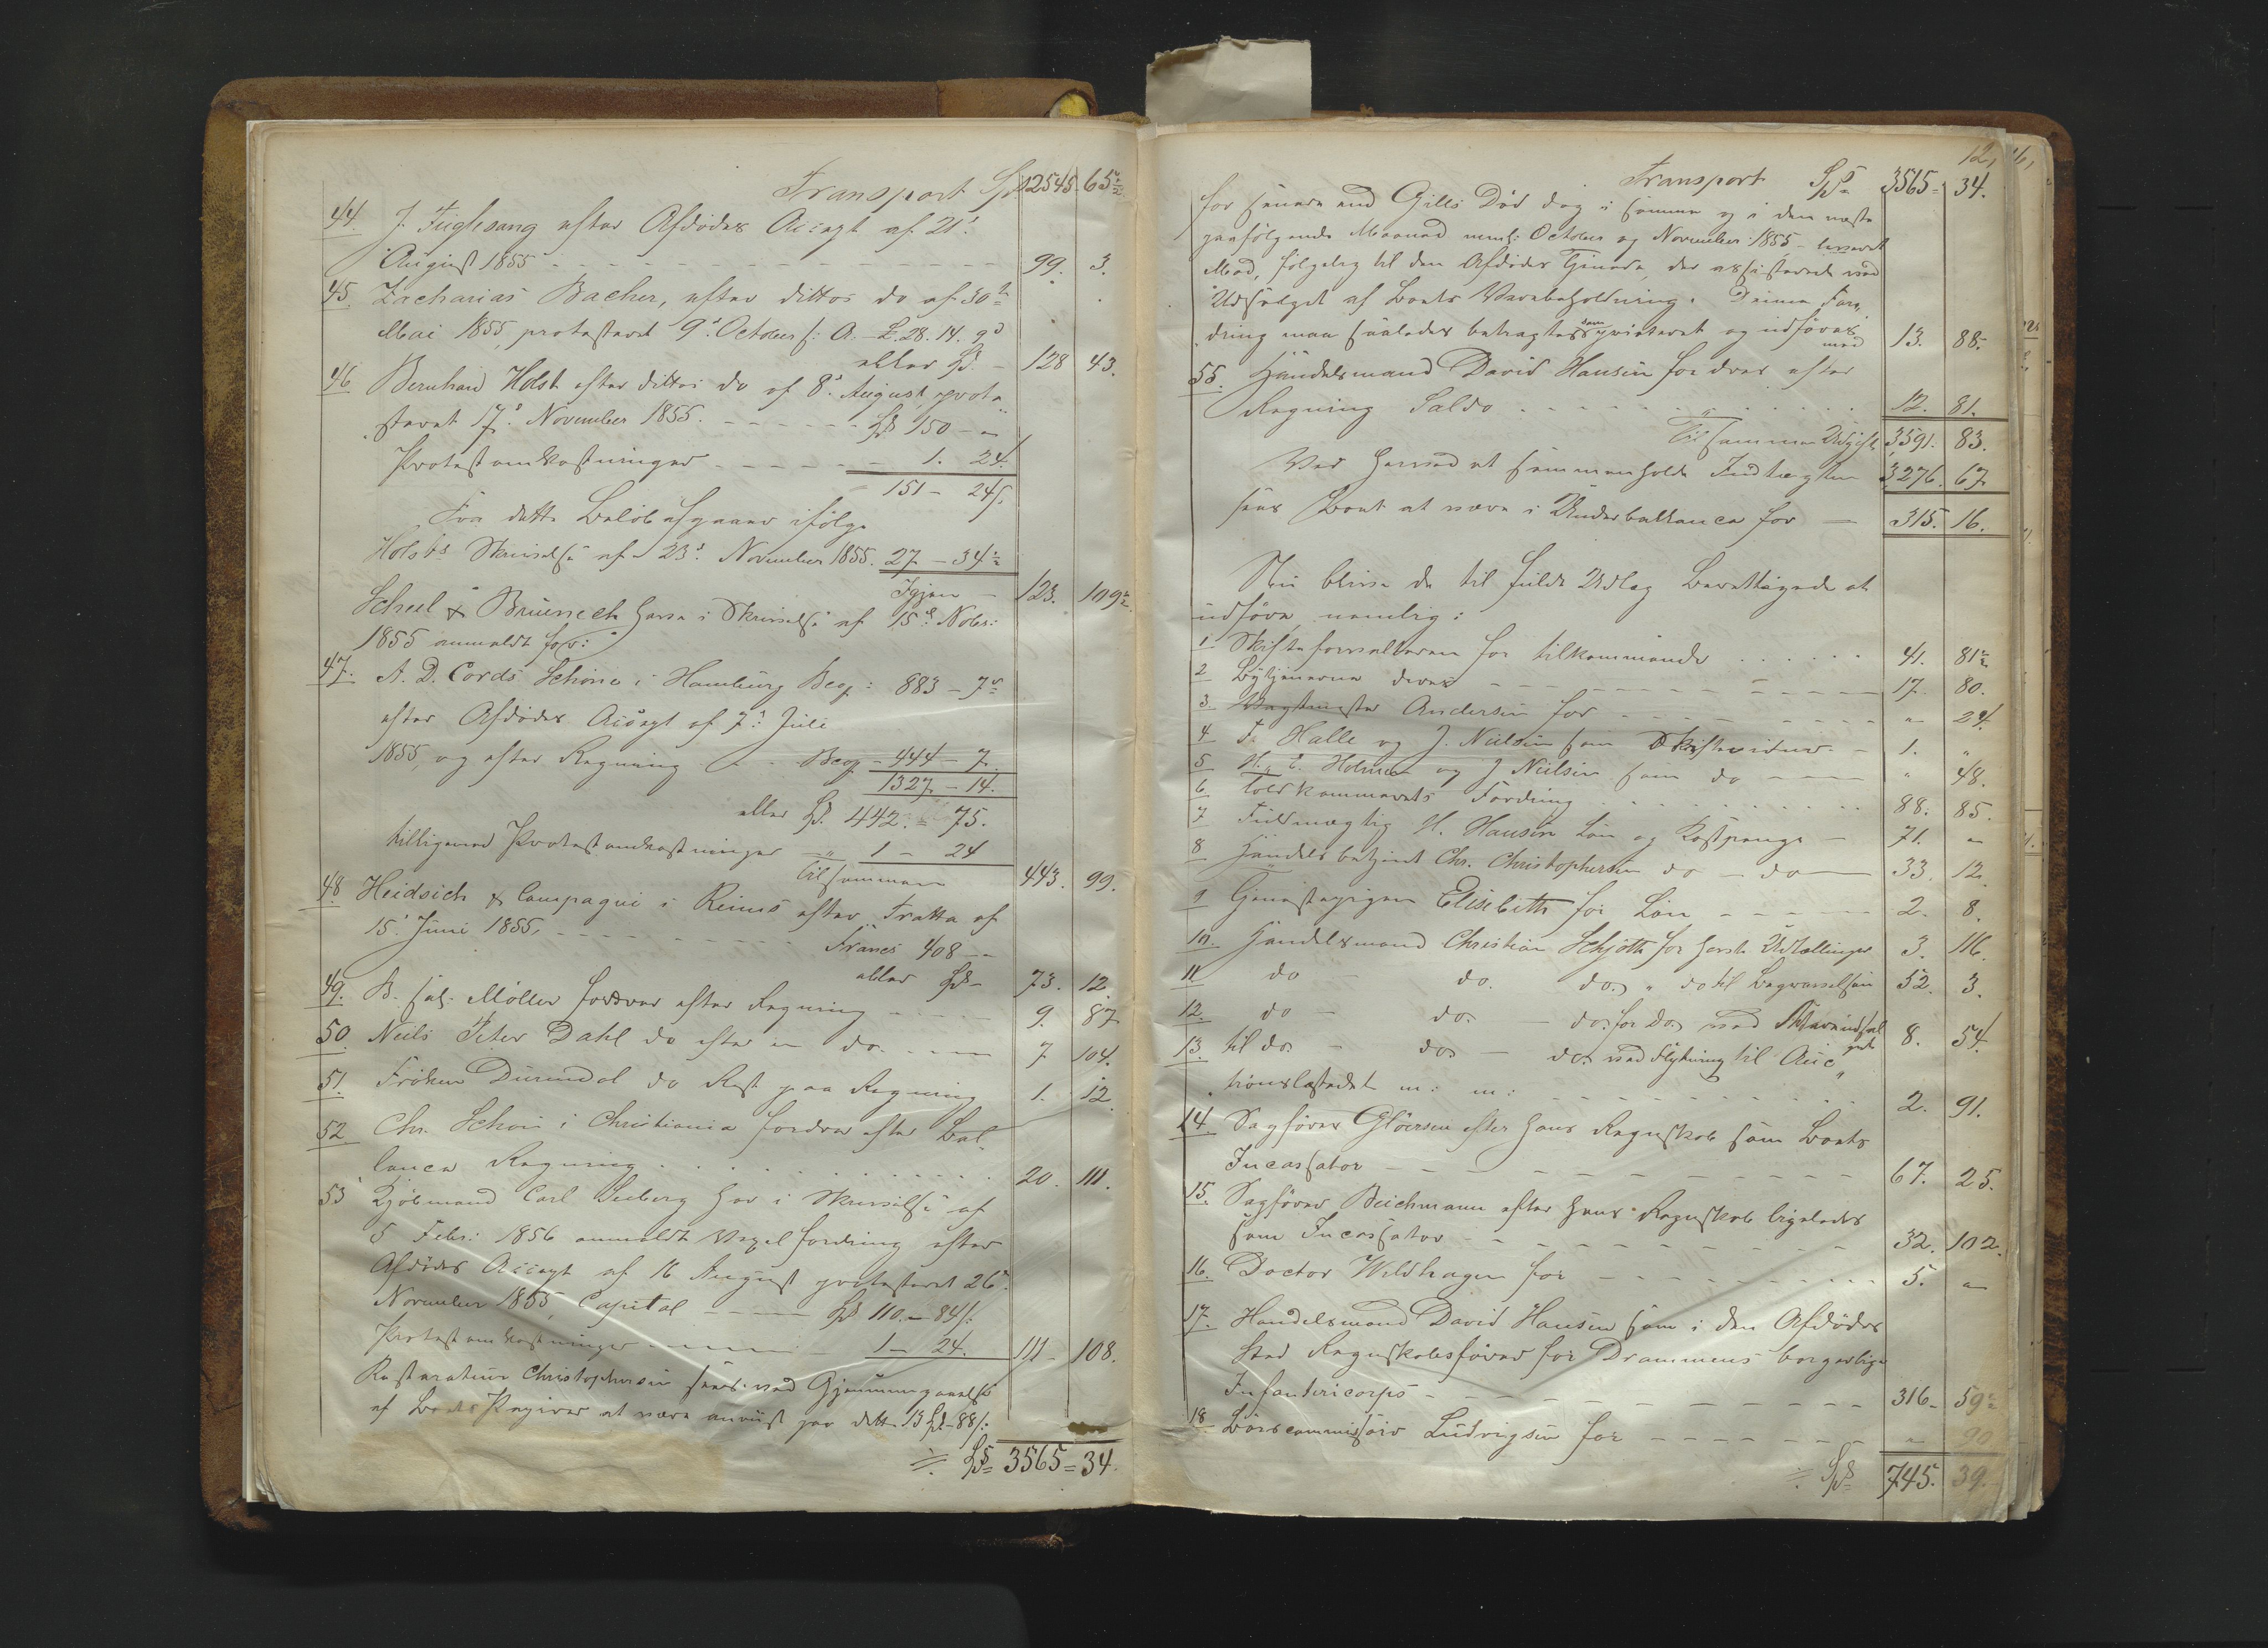 Transport Spd 2545 65½
44. J. Fuglesang efter Afdødes Accept af 21.
August 1855 - - - 99. 3.
45. Zacharias Bacher, efter dittos do af 30te
Mai 1855, protesteret 9d October s: A. - L. 28. 14. 9d
eller Spd - 128 43.
46 Bernhard Holst efter dittos do af 8d August, prote„
steret 17d November 1855. - - - Spd 150 - „
Protestomkostninger - - - 1. 24.
151 - 24ſ.
Fra dette Beløb afgaaer ifølge
Holsts Skrivelse af 23d November 1855. 27 - 34½
Igjen - 123. 109½.
Scheel & Brünech have i Skrivelse af 15d Novbr:
1855 anmeldt for:
47. A. D. Cords Schöne i Hamburg Bco: 883 - 7
efter Afdødes Accept af 7d Juli
1855, og efter Regning - - Bco - 444 - 7.
1327. - 14.
eller Spd. 442. - 75.
tilligemed Protestomkostninger - „ 1 - 24
Tilsammen 443. 99.
48. Heidsich & Compagni i Reims efter Tratta af
15. Juni 1855. - - - Francs 408 - -
eller Spd - 73. 12.
49. B. sal. Møller fordrer efter Regning - - - 9. 87
50. Neils Peter Dahl do efter en do - - - 7 104.
51. Frøken Durendal do Rest paa Regning 1. 12.
52 Chr. Schou i Christiania fordrer efter Bal„
lance Regning . . . 20. 111.
53 Kjøbmand Carl Seeberg har i Skrivelse af
5 Febr: 1856 anmeldt Vexelfordring efter
Afdødes Accept af 16 August protesteret 26d
November 1855, Capital - - - Spd 110. - 84ſ.
Protestomkostninger - - - 1 - 24. 111 - 108.
Restaurateur Christophersen sees ved Gjennemgaaelse
af Boets Papirer at være anviist paa dette 13 Spd - 88ſ:
÷ Spd 3565 = 34.
12,
Transport Spd 3565 - 34.
for senere end Gills Død dog i samme og i den næste
paafølgende Maaned neml: October og November 1855 - leveret
Mad, følgelig til den Afdødes Tjenere, der assisterede ved
Udsalget af Boets Varebeholdning. Denne For„
dring maa saaledes betragtes som privateret og udføres
med 13. 88.
55. Handelsmand David Hansen fordrer efter
Regning Saldo . . . 12. 81.
Tilsammen Udgift 3591. 83.
Ved hermed at sammenholde Indtægten 3276. 67
sees Boet at være i Underballance for - 315. 16.
Nu blive de til fuldt Udlæg Berettigede at
udføre, nemlig:
1 Skifteforvalteren for tilkommende . . . 41. 81½
2 Bytjenerne deres - - - 17. 80.
3. Vagtmester Andersen for - - - „ 24.
4 F. Halle og J. Nielsen som Skiftevidner - 1. „
5 H. E. Holmen og J Nielsen som do - - - „ 48.
6. Toldkammerets Fordring . . . 88. 85.
7 Fuldmægtig H. Hansen Løn og Kostpenge - 71. „
8 Handelsbetjent Chr. Christophersen do - do - 33. 12.
9 Tjenestepigen Elisebeth for Løn - - - 2. 8.
10. Handelsmand Christian Schjøtt for havte Udtællinger 3. 116.
11 do - do. do. „ do til Begravelsen 52. 3.
12. do - do. - do. for do. ved Vareindsal
gende 8. 54.
13. til do. - do. - do. ved Flytning til Auc„
tionslocalet m: m: - - - 2. 91.
14. Sagfører Gløersen efter hans Regnskab som Boets
Incassator - - - 67. 25.
15. Sagfører Beichmann efter hans Regnskab ligeledes
som Incassator - - - 32. 102.
16. Doctor Wildhagen for - - - 5. „
17. Handelsmand David Hansen som i den Afdødes
Sted Regnskabsfører for Drammens borgerlige
Infantericorps - - - 316 - 59½
18 Børscommissair Ludvigsen for - - - „ 90
÷ Spd 745. 39.